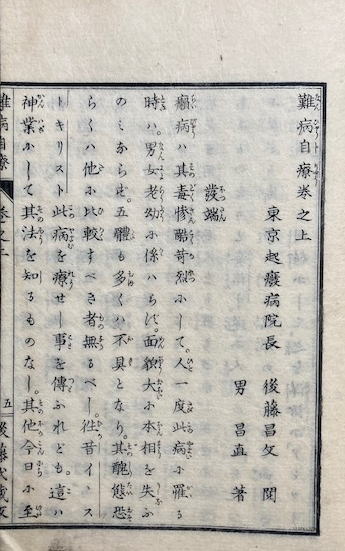 難病自療巻之上
東京起廢病院長 後藤昌文 閲
男 昌直 著
發端
癩病ハ其毒慘酷苛烈にして。人一度此病に罹る
時ハ。男女老幼に係ハらず。面貌大に本相を失ふ
のみならず。五體も多くハ不具となり。其醜態恐
らくハ他に比較すべき者無るべし。徃昔イヽス
トキリスト此病を療せし事を傳ふれども。這ハ
神業にして其法を知るものなし。其他今日に至
難病自療 巻之上 五